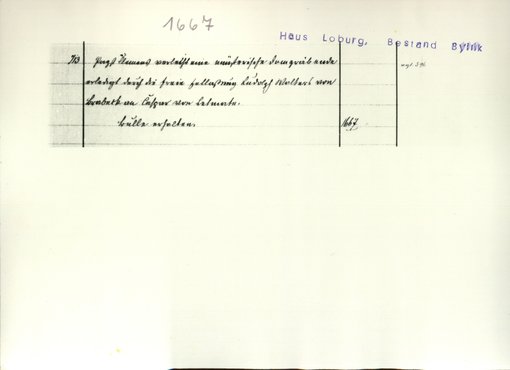 1667
Haus Loburg, Bestand Sylik
713 Papst Clemens verleiht eine münsterische Dompräbende
erledigt durch die freie Resignation Rudolph Wolters von
Brabeck an Caspar von Letmate.
Bulle erhalten.
1667
vgl. 596